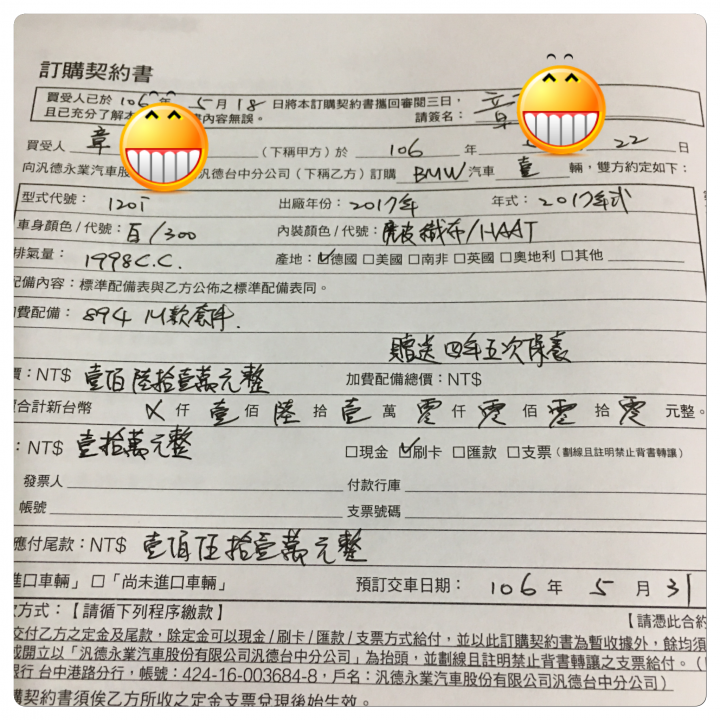 訂購契約書
買受人已於 106 年 5 月 18 日將本訂購契約書攜回審閱三日，
且已充分了解本 內容無誤。 請簽名：章
買受人 章 （下稱甲方）於 106 年 22 日
向汎德永業汽車股 汎德台中分公司（下稱乙方）訂購 BMW 汽車 壹 輛，雙方約定如下：
型式代號： 120i 出廠年份： 2017年 年式： 2017年式
車身顏色／代號： 白／300 內裝顏色／代號： 織布／HAAT
排氣量： 1998C.C. 產地：☑德國 □美國 □南非 □英國 □奧地利 □其他
配備內容：標準配備表與乙方公佈之標準配備表同。
費配備： 894 M款套件.
贈送四年五次保養
：NT$ 壹佰陸拾壹萬元整 加費配備總價：NT$
合計新台幣 X 仟 壹 佰 陸 拾 壹 萬 零 仟 零 佰 零 拾 零 元整。
：NT$ 壹拾萬元整 □現金 ☑刷卡 □匯款 □支票（劃線且註明禁止背書轉讓）
發票人 付款行庫
帳號 支票號碼
應付尾款：NT$ 壹佰伍拾壹萬元整
進口車輛」 □「尚未進口車輛」 預訂交車日期： 106 年 5 月 31
方式：【請循下列程序繳款】 【請憑此合約
交付乙方之定金及尾款，除定金可以現金／刷卡／匯款／支票方式給付，並以此訂購契約書為暫收據外，餘均須
或開立以「汎德永業汽車股份有限公司汎德台中分公司」為抬頭，並劃線且註明禁止背書轉讓之支票給付。（
銀行 台中港路分行，帳號：424-16-003684-8，戶名：汎德永業汽車股份有限公司汎德台中分公司）
購契約書須俟乙方所收之定金支票兌現後始生效。